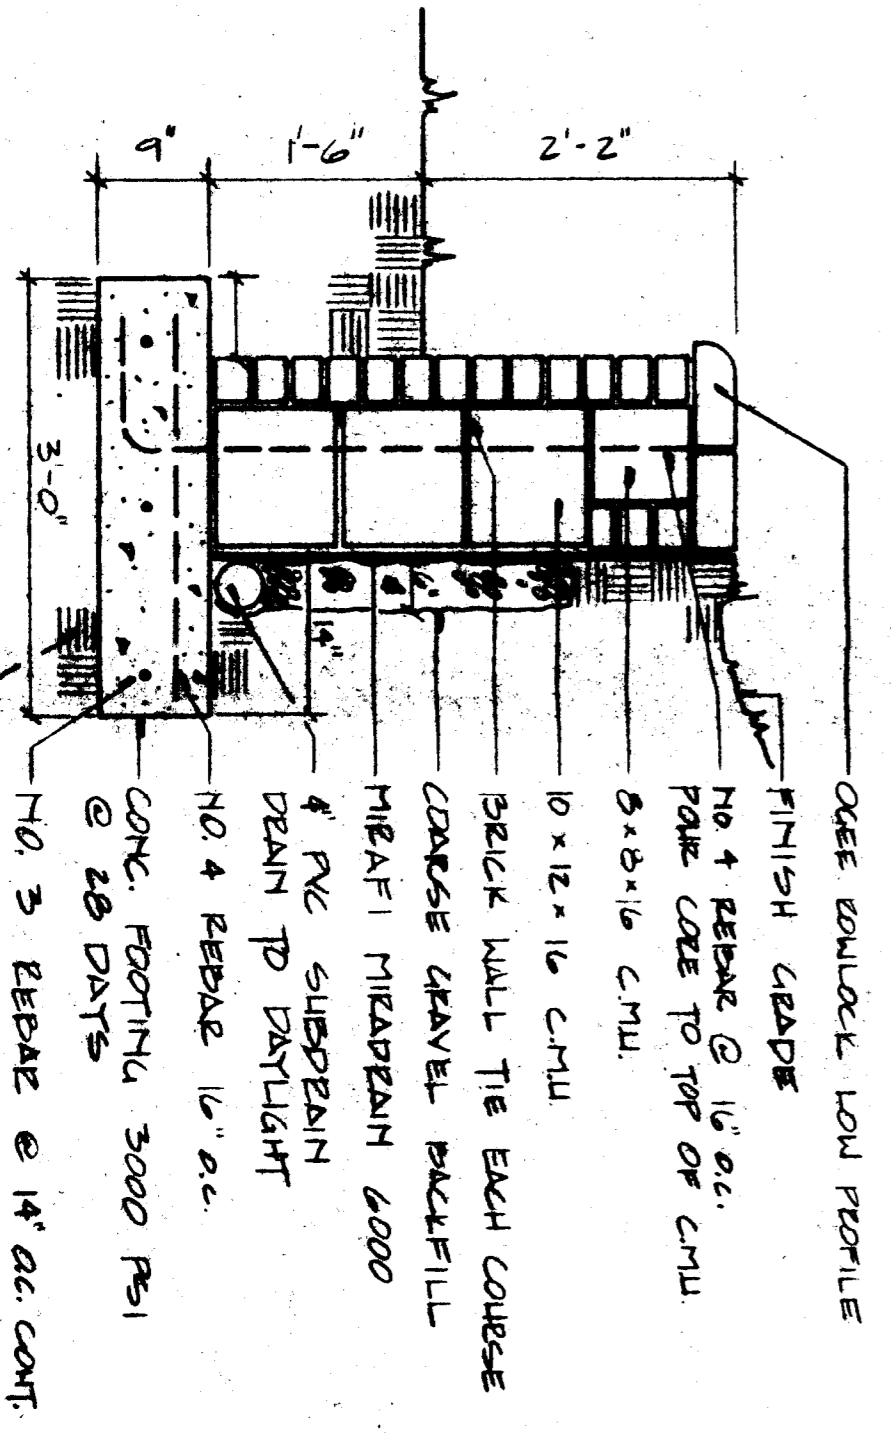 OGEE ROWLOCK LOW PROFILE
FINISH GRADE
NO 4 REBAR @ 16" O.C.
POUR CORE TO TOP OF C.M.U.
8 x 8 x 16 C.M.U.
10 x 12 x 16 C.M.U.
BRICK WALL TIE EACH COURSE
COARSE GRAVEL BACKFILL
MIRAFI MIRADRAIN 6000
4" PVC SUBDRAIN
DRAIN TO DAYLIGHT
NO. 4 REBAR 16" O.C.
CONC. FOOTING 3000 PSI
@ 28 DAYS
NO. 3 REBAR @ 14" OC. CONT.
2'-2"
1'-6"
9"
6"
14"
3'-0"